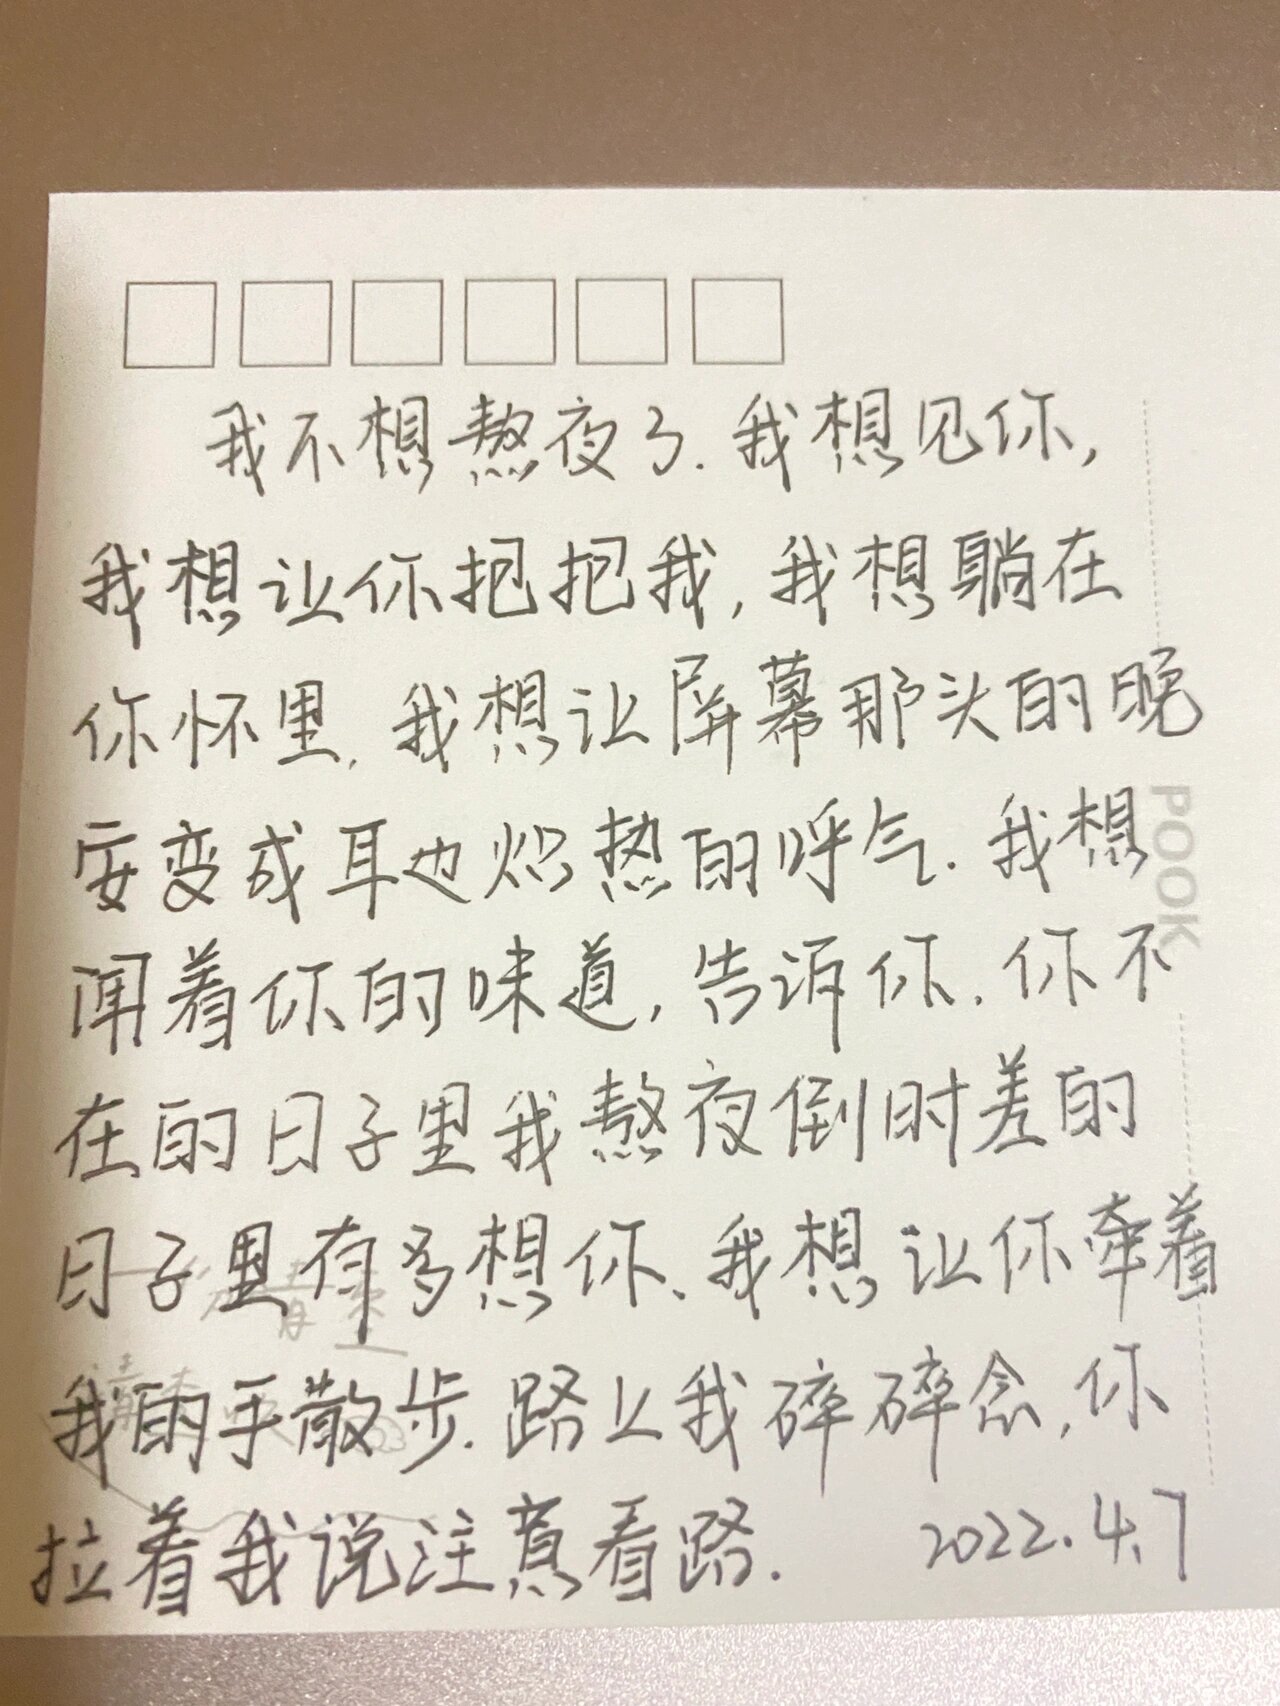 我不想熬夜了.我想见你,
我想让你抱抱我,我想躺在
你怀里.我想让屏幕那头的晚
安变成耳边炽热的呼气.我想
闻着你的味道,告诉你.你不
在的日子里我熬夜倒时差的
日子里有多想你、我想让你牵着
我的手散步.路上我碎碎念,你
拉着我说注意看路.
2022.4.7
POOK